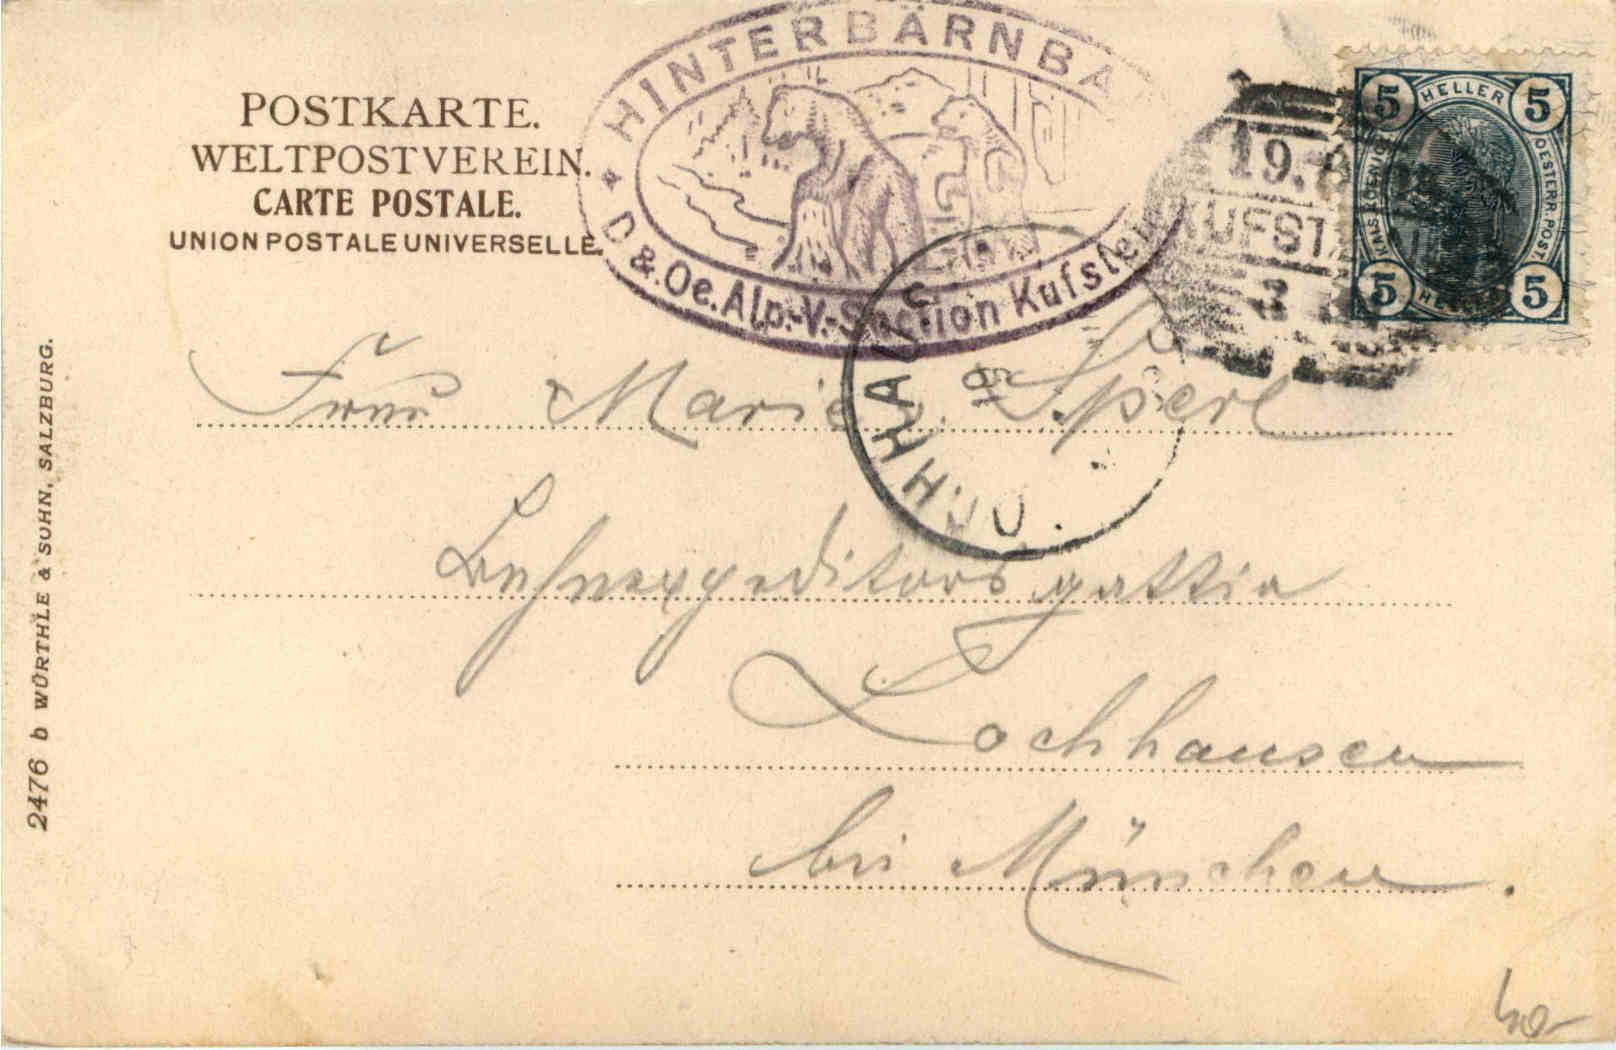 POSTKARTE.
WELTPOSTVEREIN.
CARTE POSTALE.
UNION POSTALE UNIVERSELLE.
HINTERBÄRNBA
D & Oe. Alp.-V.-Section Kufstein
19. 8
KUFST
3
5 HELLER 5
OESTERR. POST.
5 HELLER 5
Frau Marie Sperl
Bahnexpeditorsgattin
Lochhausen
bei München.
2476 b WÜRTHLE & SOHN, SALZBURG.